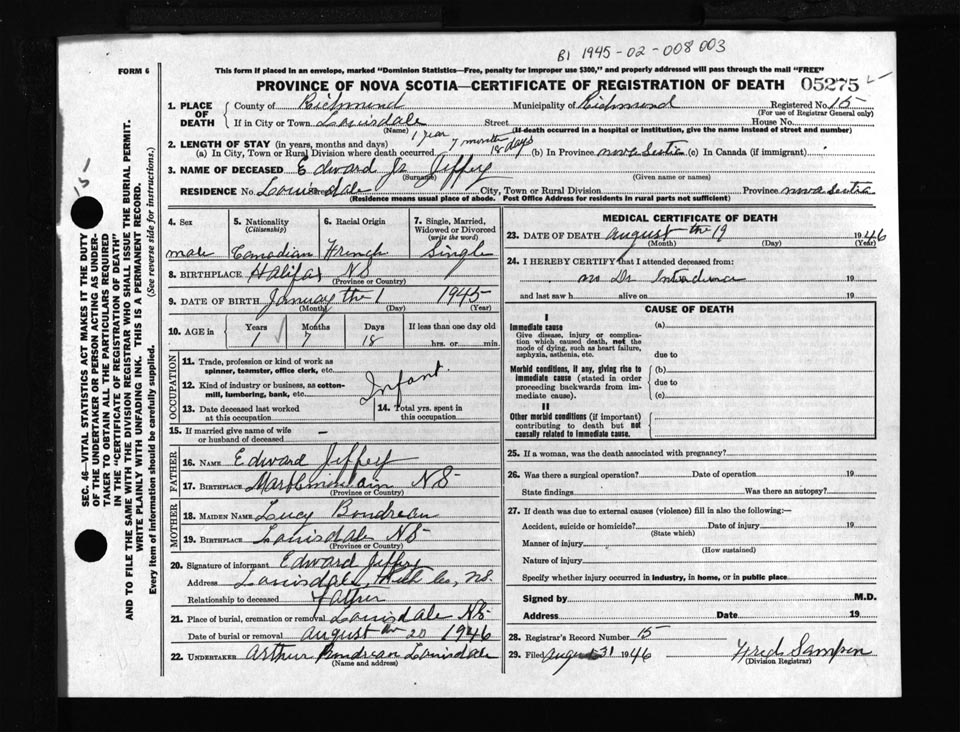 B1 1945-02-008003
FORM 6
This form if placed in an envelope, marked "Dominion Statistics—Free, penalty for improper use $300," and properly addressed will pass through the mail "FREE"
PROVINCE OF NOVA SCOTIA—CERTIFICATE OF REGISTRATION OF DEATH 05275
1. PLACE OF DEATH County of Richmond Municipality of Richmond Registered No. 15
(For use of Registrar General only)
If in City or Town Louisdale Street House No.
(Name) (If death occurred in a hospital or institution, give the name instead of street and number)
2. LENGTH OF STAY (in years, months and days) 1 year 7 months 18 days
(a) In City, Town or Rural Division where death occurred (b) In Province Nova Scotia (c) In Canada (if immigrant)
3. NAME OF DECEASED Edward Jr Jeffey
(Surname) (Given or names)
RESIDENCE No. Louisdale Street City, Town or Rural Division Province Nova Scotia
(Residence means usual place of abode. Post Office Address for residents in rural parts not sufficient)
4. Sex 5. Nationality (Citizenship) 6. Racial Origin 7. Single, Married, Widowed or Divorced (write the word)
male Canadian French Single
8. BIRTHPLACE Halifax NS
(Province or Country)
9. DATE OF BIRTH January the 1 1945
(Month) (Day) (Year)
10. AGE in Years Months Days If less than one day old
1 7 18 hrs. or min.
OCCUPATION
11. Trade, profession or kind of work as spinner, teamster, office clerk, etc.
12. Kind of industry or business, as cotton-mill, lumbering, bank, etc.
Infant.
13. Date deceased last worked at this occupation
14. Total yrs. spent in this occupation
15. If married give name of wife or husband of deceased —
FATHER
16. NAME Edward Jeffery
17. BIRTHPLACE NS
(Province or Country)
MOTHER
18. MAIDEN NAME Lucy Boudreau
19. BIRTHPLACE Louisdale NS
(Province or Country)
20. Signature of informant Edward Jeffery
Address Louisdale, NS.
Relationship to deceased Father
21. Place of burial, cremation or removal Louisdale NS
Date of burial or removal August 20 1946
22. UNDERTAKER Arthur Boudreau Louisdale
(Name and address)
MEDICAL CERTIFICATE OF DEATH
23. DATE OF DEATH August the 19 1946
(Month) (Day) (Year)
24. I HEREBY CERTIFY that I attended deceased from:
no Dr 19
and last saw h alive on 19
CAUSE OF DEATH
I
Immediate cause (a)
Give disease, injury or complication which caused death, not the mode of dying, such as heart failure, asphyxia, asthenia, etc.
due to
Morbid conditions, if any, giving rise to immediate cause (stated in order proceeding backwards from immediate cause).
(b)
due to
(c)
II
Other morbid conditions (if important) contributing to death but not causally related to immediate cause.
25. If a woman, was the death associated with pregnancy?
26. Was there a surgical operation? Date of operation 19
State findings Was there an autopsy?
27. If death was due to external causes (violence) fill in also the following:—
Accident, suicide or homicide? Date of injury 19
(State which)
Manner of injury
(How sustained)
Nature of injury
Specify whether injury occurred in industry, in home, or in public place
Signed by M.D.
Address Date 19
28. Registrar's Record Number 15
29. Filed August 31 1946 Fred Sampson
(Division Registrar)
SEC. 46—VITAL STATISTICS ACT MAKES IT THE DUTY
OF THE UNDERTAKER OR PERSON ACTING AS UNDER-
TAKER TO OBTAIN ALL THE PARTICULARS REQUIRED
IN THE "CERTIFICATE OF REGISTRATION OF DEATH"
AND TO FILE THE SAME WITH THE DIVISION REGISTRAR WHO SHALL ISSUE THE BURIAL PERMIT.
WRITE PLAINLY WITH UNFADING INK. THIS IS A PERMANENT RECORD.
Every item of information should be carefully supplied. (See reverse side for instructions.)